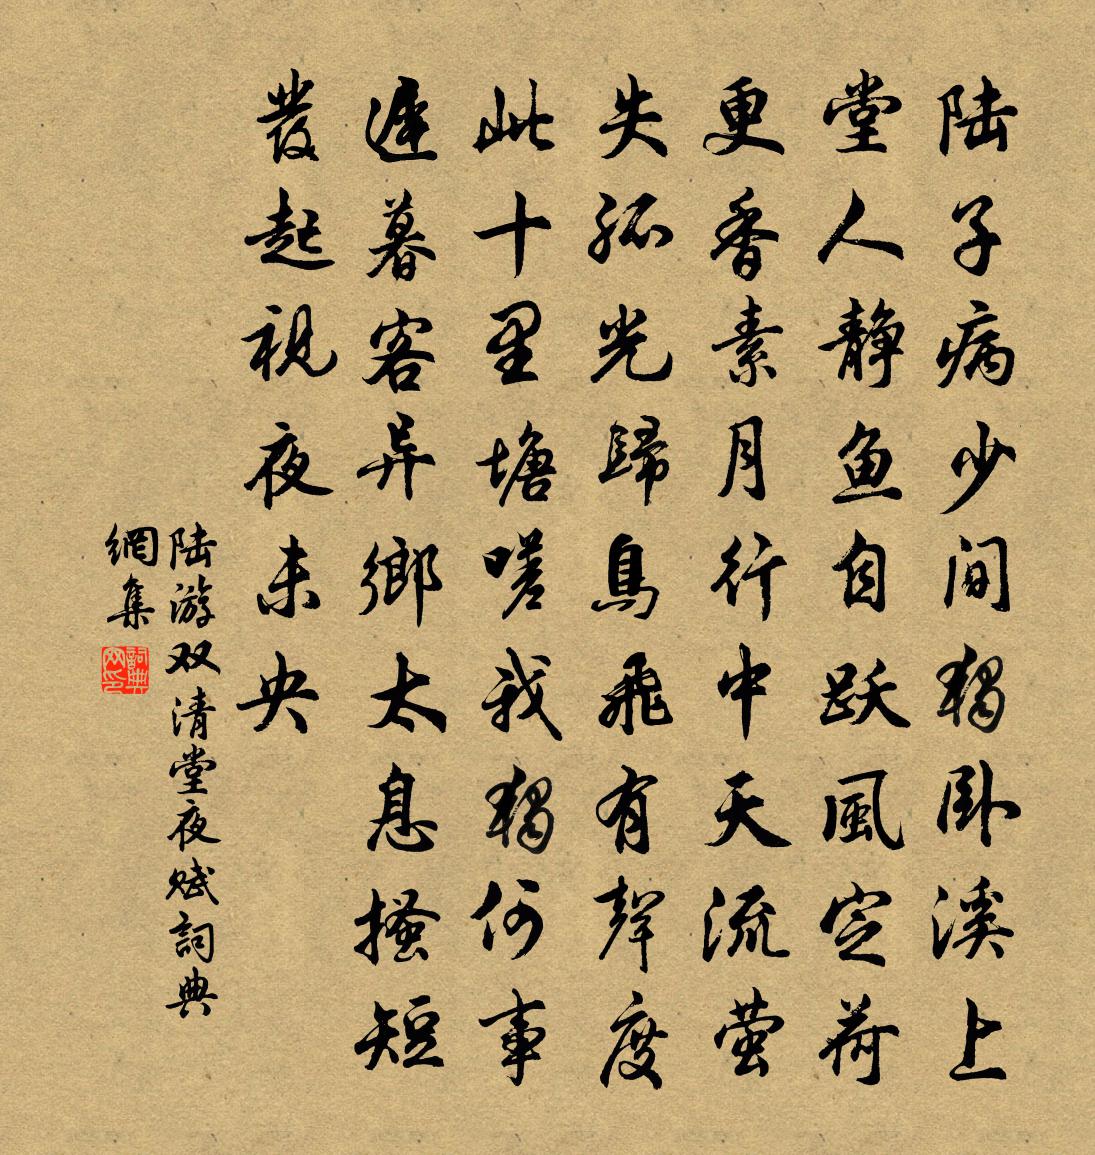 陆子病少间独卧溪上
堂人静鱼自跃風定荷
更香素月行中天流萤
失孤光歸鳥飛有聲度
此十里塘嗟我独何事
遲暮客异鄉太息搔短
發起視夜未央
陆游双清堂夜赋詞典
網集
詞典
网印